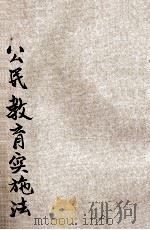 公民教育实施法